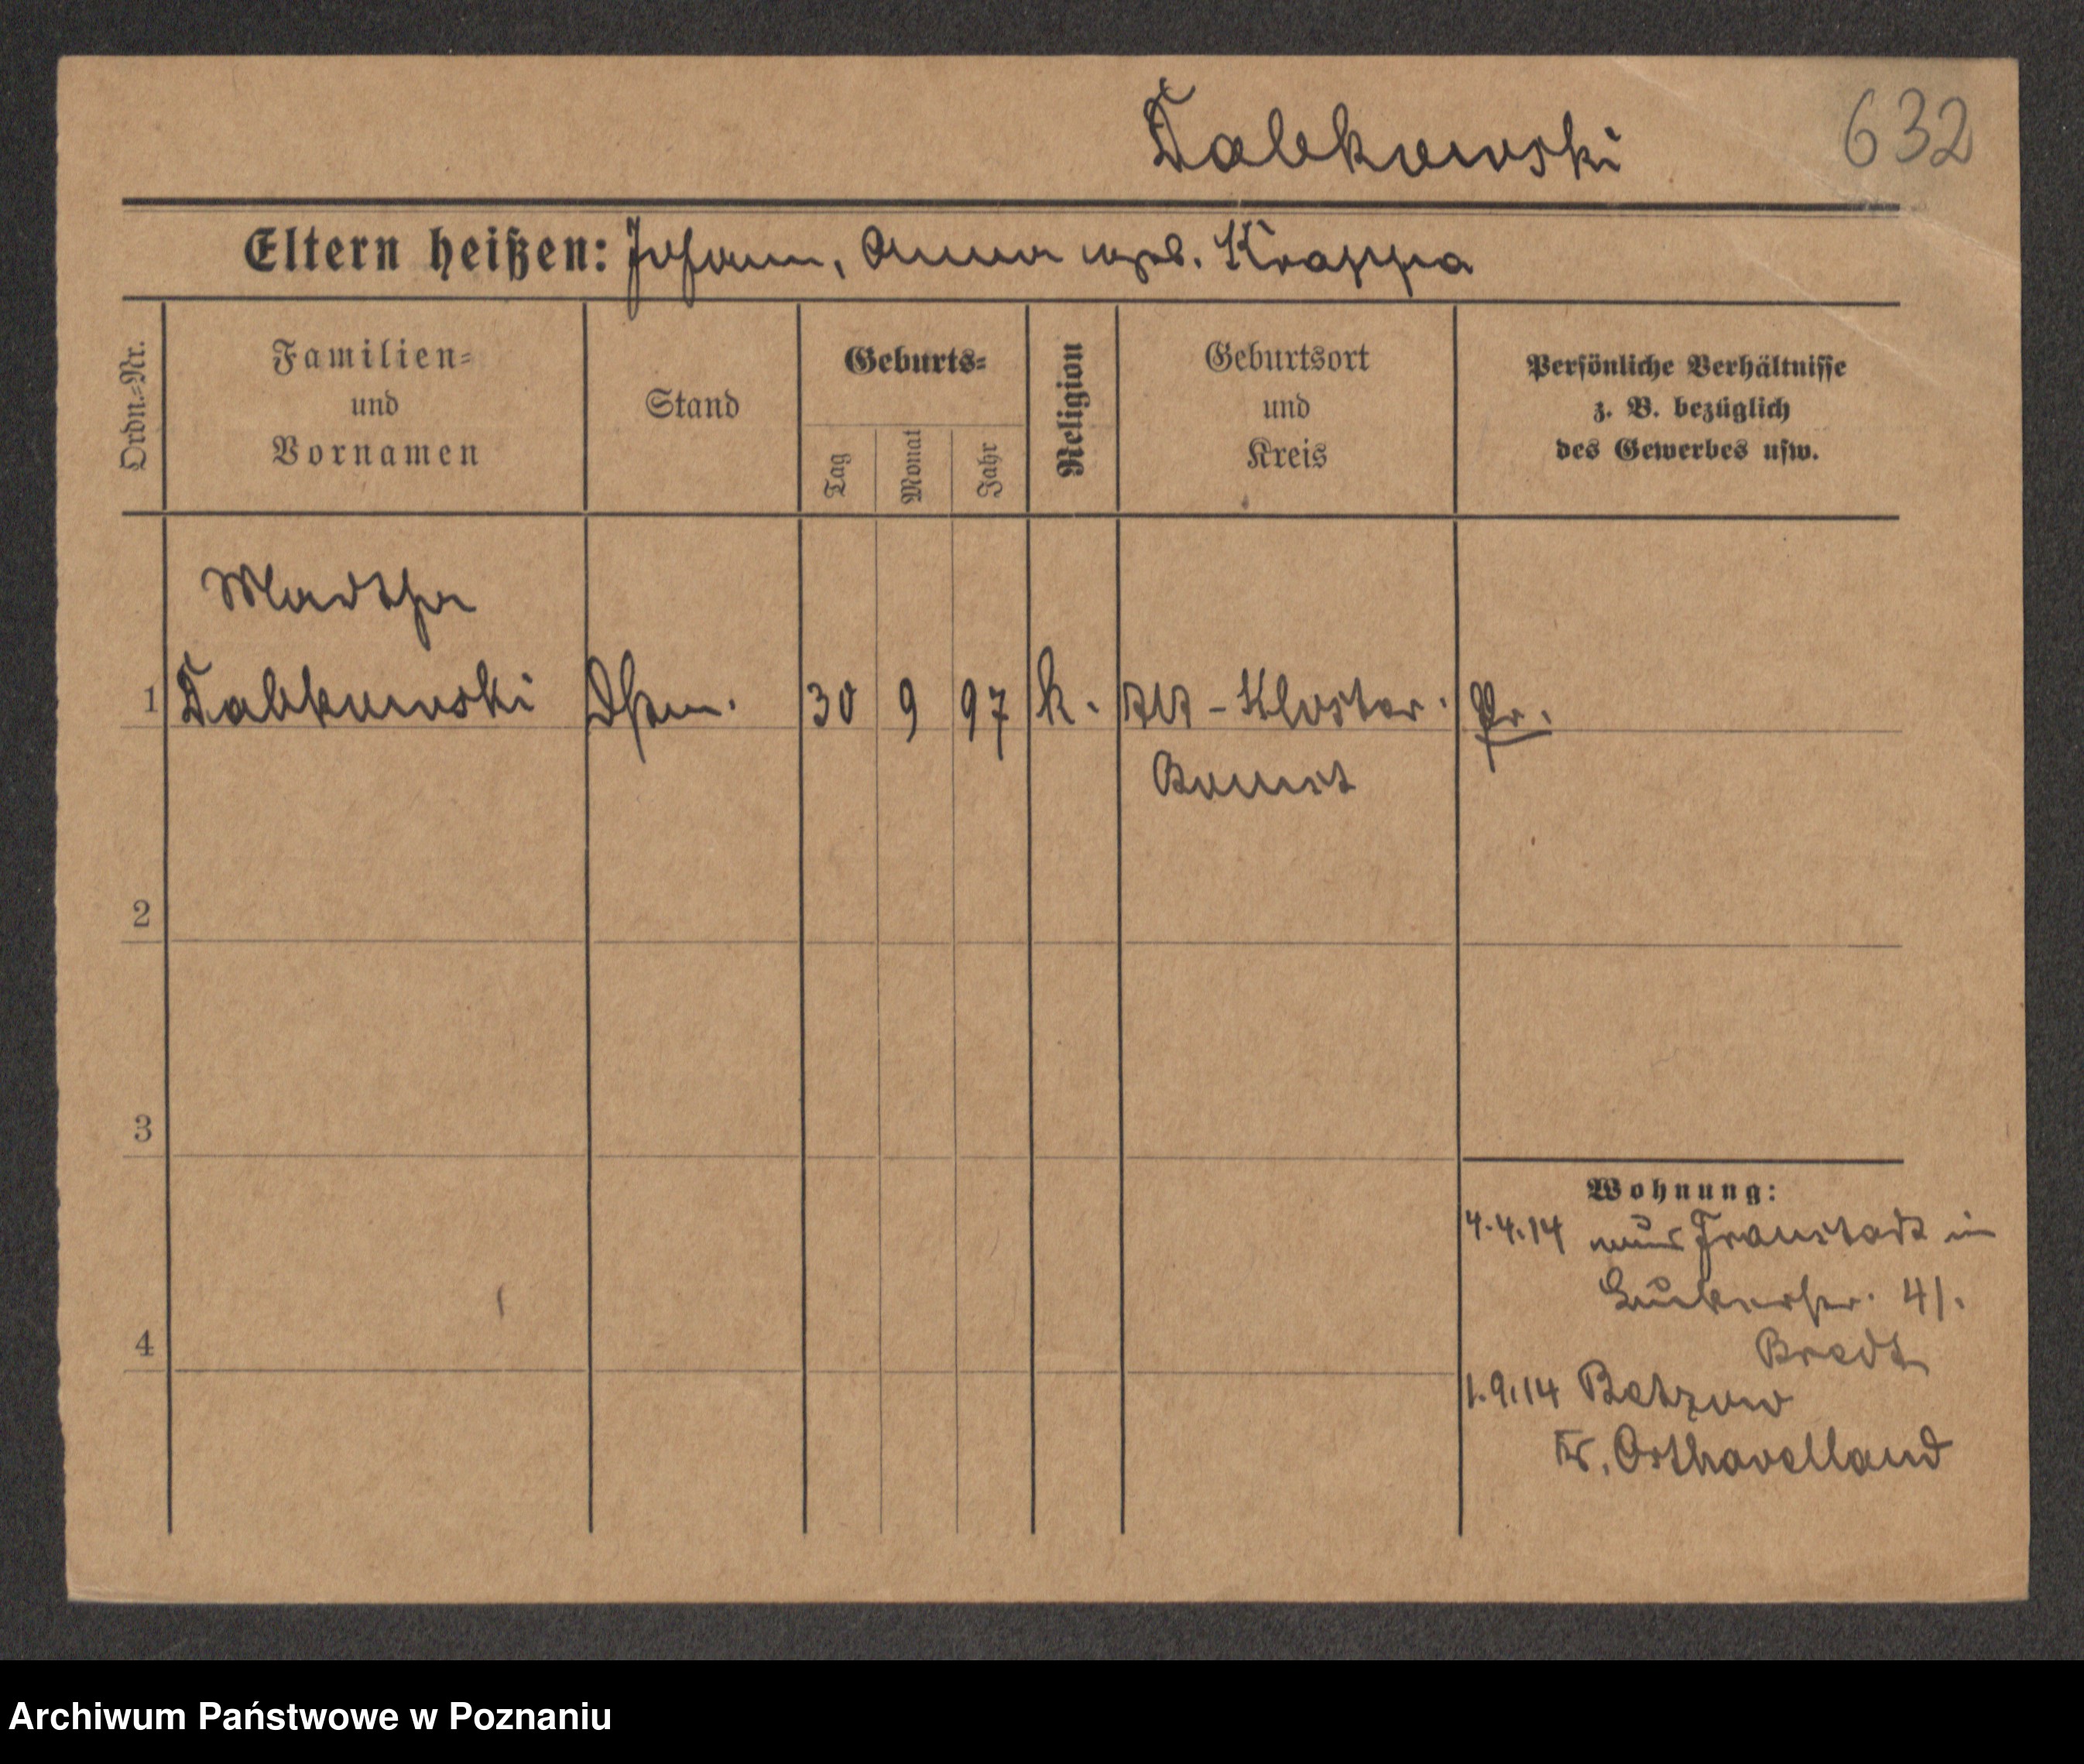 Dabkowski
632
Eltern heißen: Johann, Anna geb. Krappa
Ordn.-Nr.
Familien-
und
Vornamen
Stand
Geburts-
Tag
Monat
Jahr
Religion
Geburtsort
und
Kreis
Persönliche Verhältnisse
z. B. bezüglich
des Gewerbes usw.
Martha
1 Dabkowski 30 9 97 k. Alt-Kloster. Pr.
Bomst
2
3
Wohnung:
4.4.14 Fraustadt in
41.
4
1.9.14
Kr. Osthavelland
Archiwum Państwowe w Poznaniu